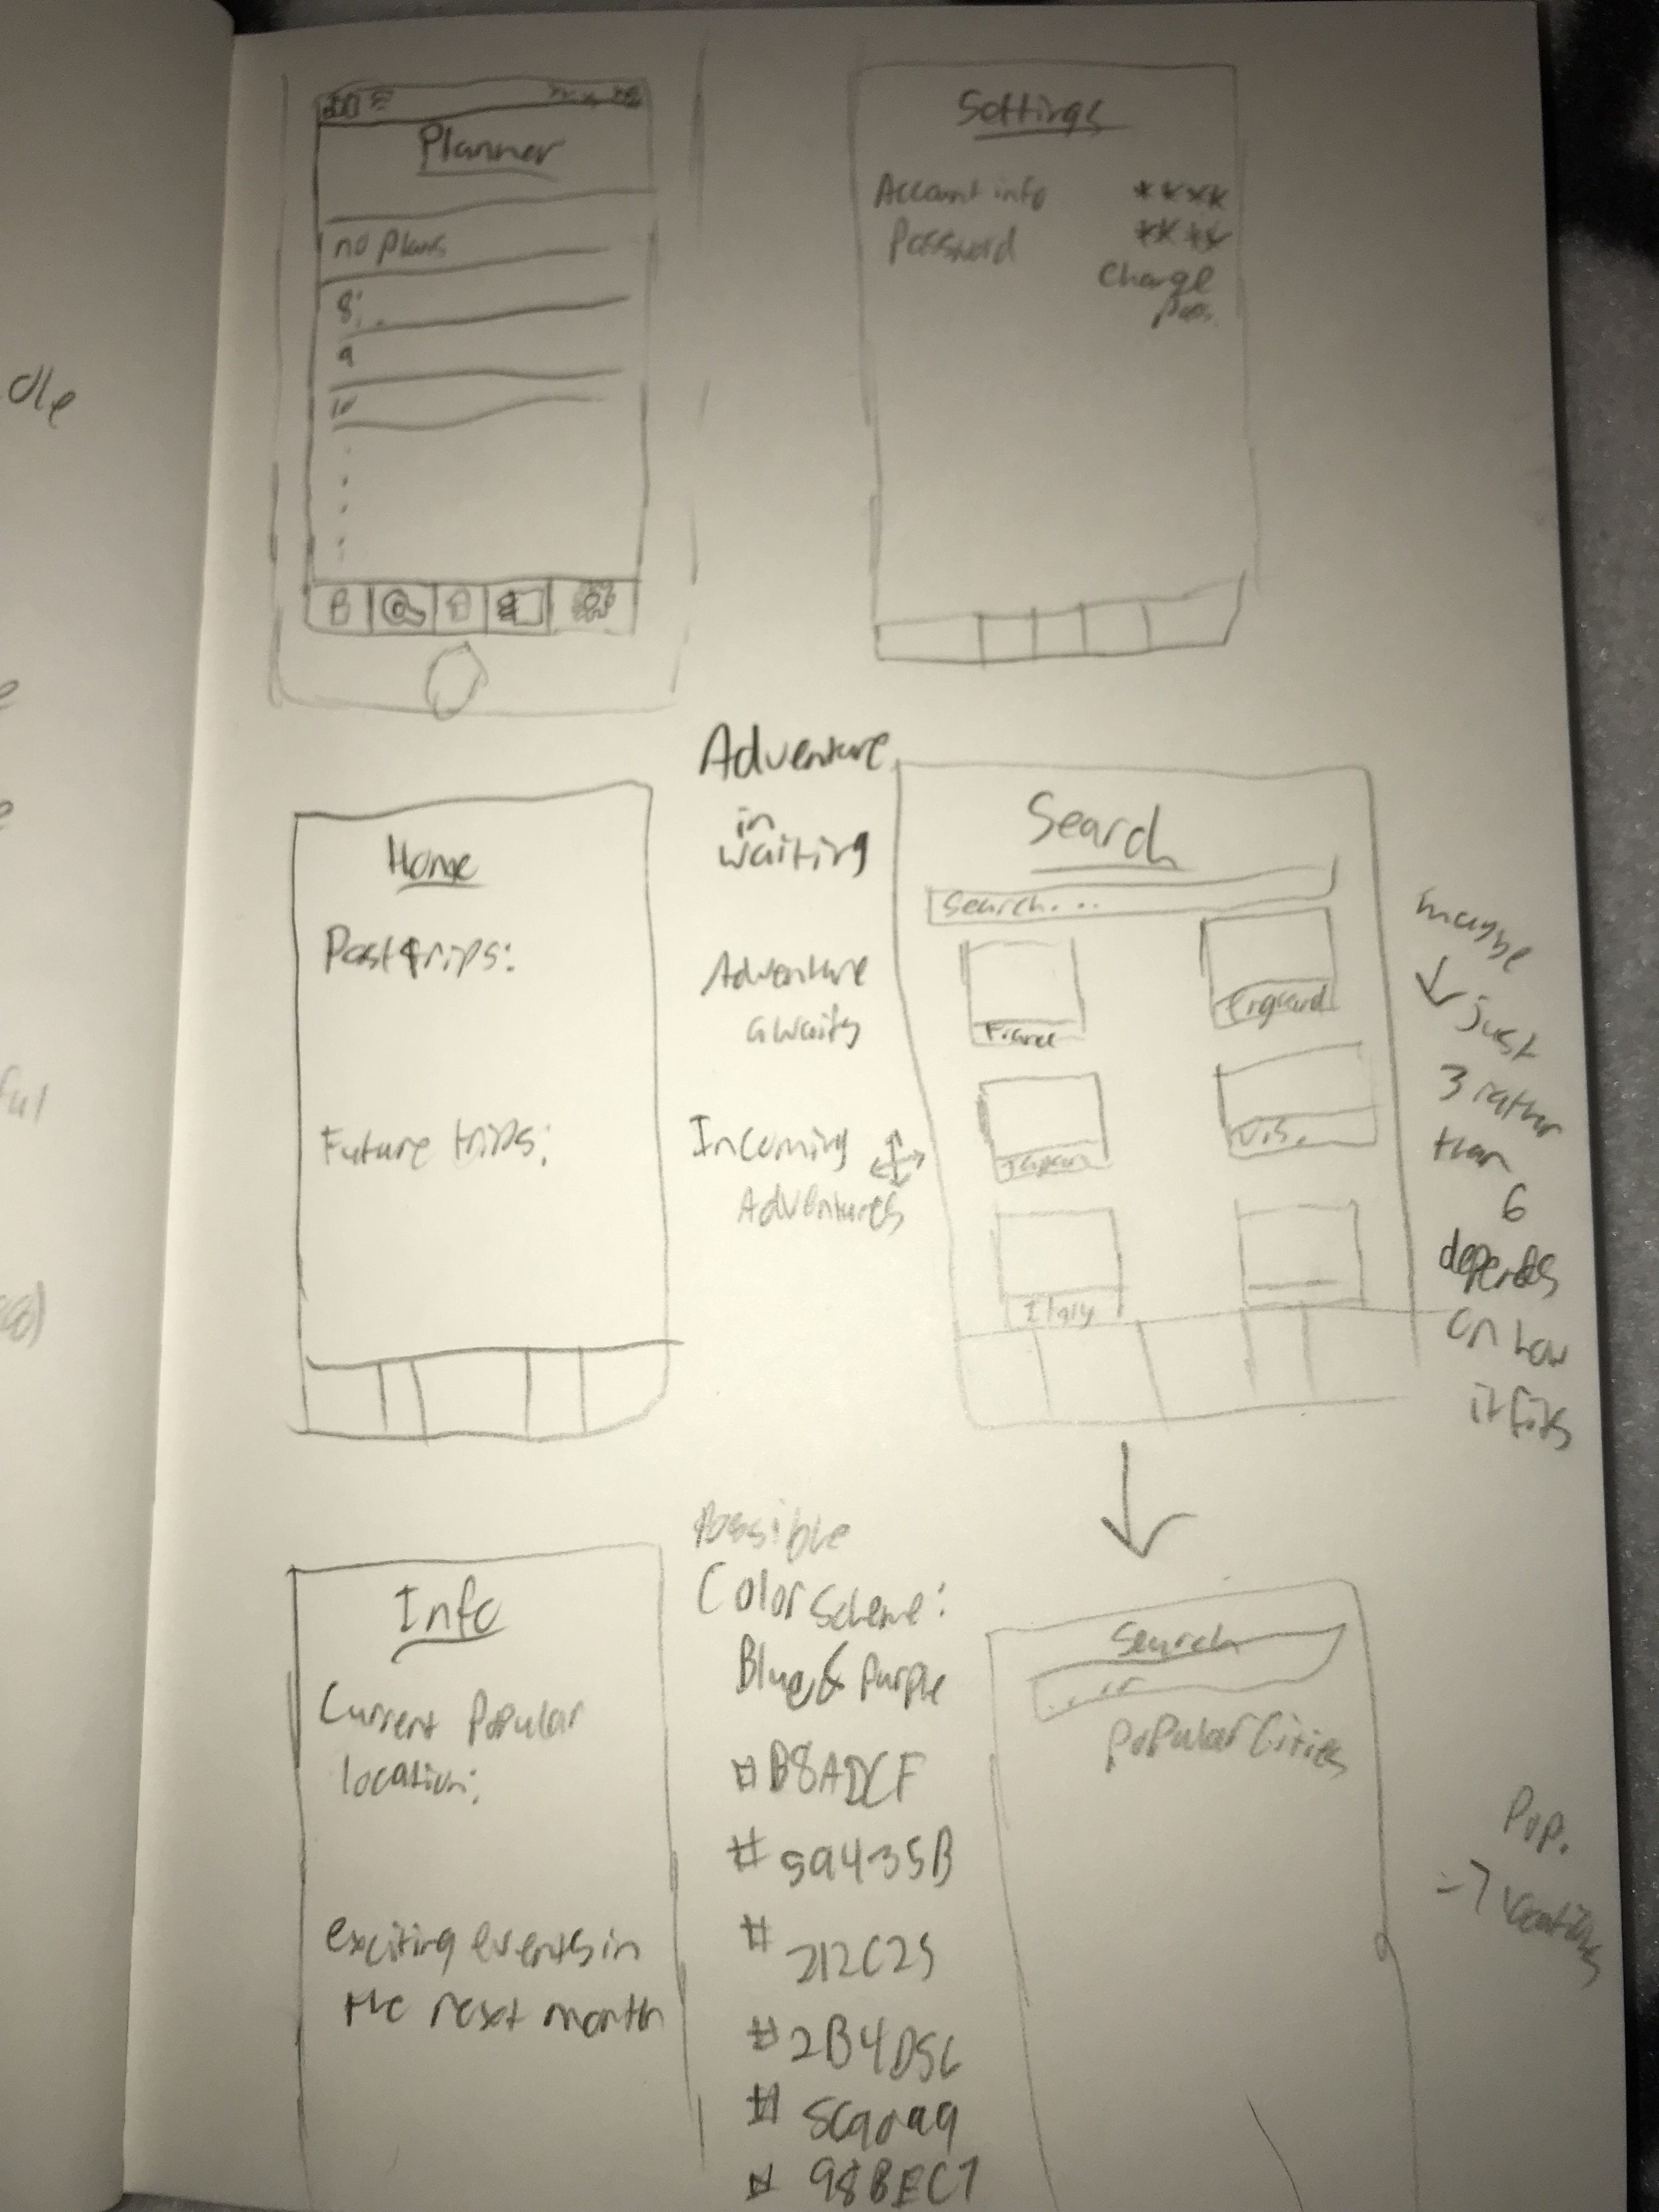 dle
Planner
no plans
8:
9
10
Settings
Account info ****
Password ****
Change
pass.
Home
Past trips:
Future trips:
Adventure
in
waiting
Adventure
awaits
Incoming
Adventures
Search
Search...
France
England
Japan
U.S.
Italy
maybe
just
3 rather
than
6
depends
on how
it fits
Info
Current Popular
location:
exciting events in
the next month
Possible
Color Scheme:
Blue & Purple
#B8ADCF
#59435B
#212C25
#2B4D56
#98BEC7
Search
...
Popular Cities
Pop.